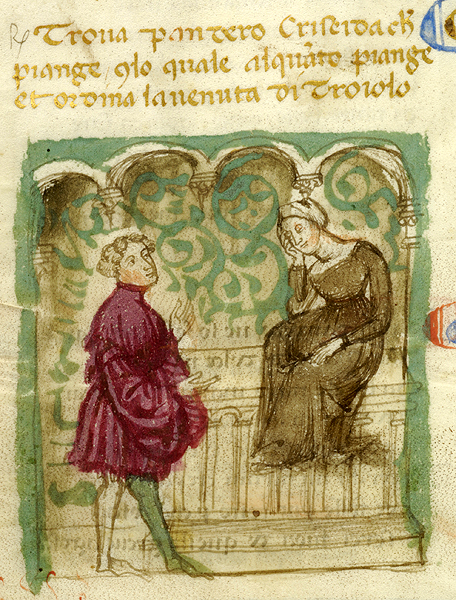 Troua pandero Criseida ch
piange 9lo quale alquãto piange
et ordina lauenuta di Troiolo